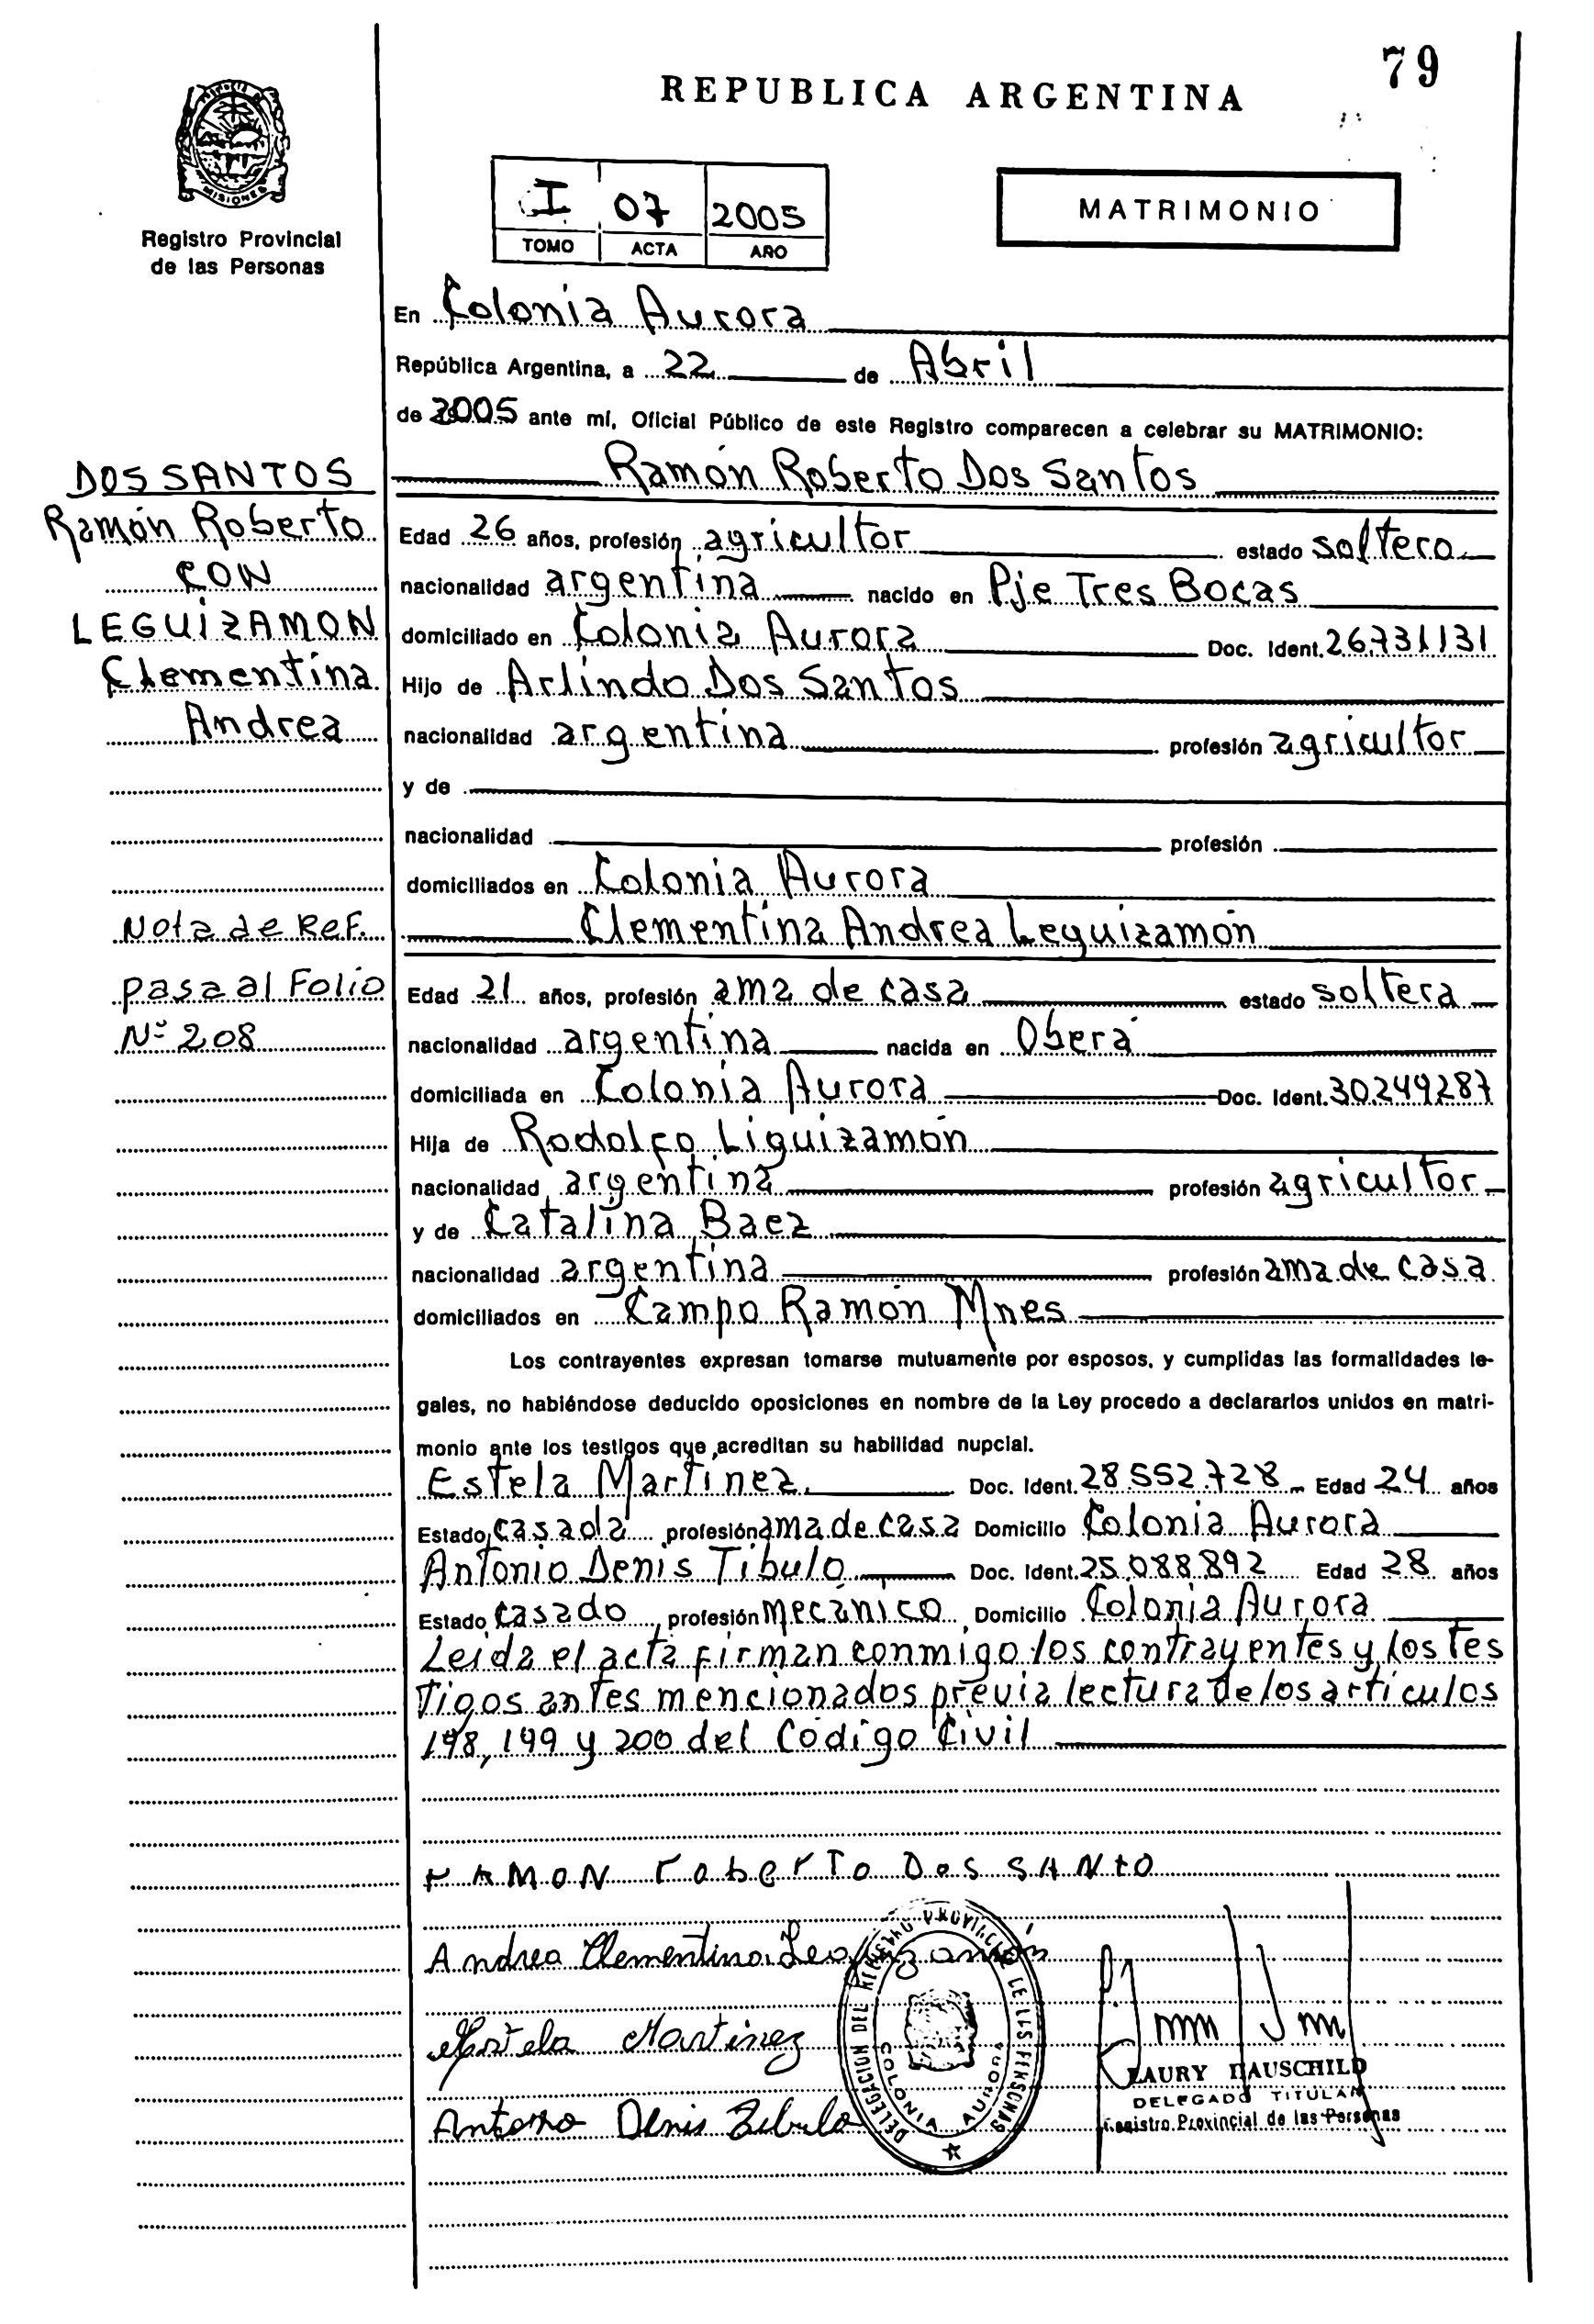 79
REPUBLICA ARGENTINA
MISIONES
Registro Provincial
de las Personas
I 07 2005
TOMO ACTA AÑO
MATRIMONIO
En Colonia Aurora
República Argentina, a 22 de Abril
de 2005 ante mí, Oficial Público de este Registro comparecen a celebrar su MATRIMONIO:
Ramón Roberto Dos Santos
Edad 26 años, profesión agricultor estado soltero
nacionalidad argentina nacido en Pje Tres Bocas
domiciliado en Colonia Aurora Doc. Ident. 26.731.131
Hijo de Arlindo Dos Santos
nacionalidad argentina profesión agricultor
y de
nacionalidad profesión
domiciliados en Colonia Aurora
Clementina Andrea Leguizamón
Edad 21 años, profesión ama de casa estado soltera
nacionalidad argentina nacida en Oberá
domiciliada en Colonia Aurora Doc. Ident. 30.249.287
Hija de Rodolfo Liguizamón
nacionalidad argentina profesión agricultor
y de Catalina Baez
nacionalidad argentina profesión ama de casa
domiciliados en Campo Ramón Mnes
Los contrayentes expresan tomarse mutuamente por esposos, y cumplidas las formalidades le-
gales, no habiéndose deducido oposiciones en nombre de la Ley procedo a declararlos unidos en matri-
monio ante los testigos que acreditan su habilidad nupcial.
Estela Martinez Doc. Ident. 28.552.728 Edad 24 años
Estado casada profesión ama de casa Domicilio Colonia Aurora
Antonio Denis Tibulo Doc. Ident. 25.088.892 Edad 28 años
Estado casado profesión mecánico Domicilio Colonia Aurora
Leida el acta firman conmigo los contrayentes y los tes
tigos antes mencionados previa lectura de los artículos
198, 199 y 200 del Codigo Civil
DOS SANTOS
Ramón Roberto
CON
LEGUIZAMON
Clementina
Andrea
Nota de Ref.
pasa al Folio
Nº 208
RAMON roberTo Dos SANto
Andrea Clementina Leguizamón
Estela Martinez
Antonio Denis Tibulo
DELEGACION DEL REGISTRO PROVINCIAL DE LAS PERSONAS
COLONIA AURORA
LAURY HAUSCHILD
DELEGADO TITULAR
Registro Provincial de las Personas